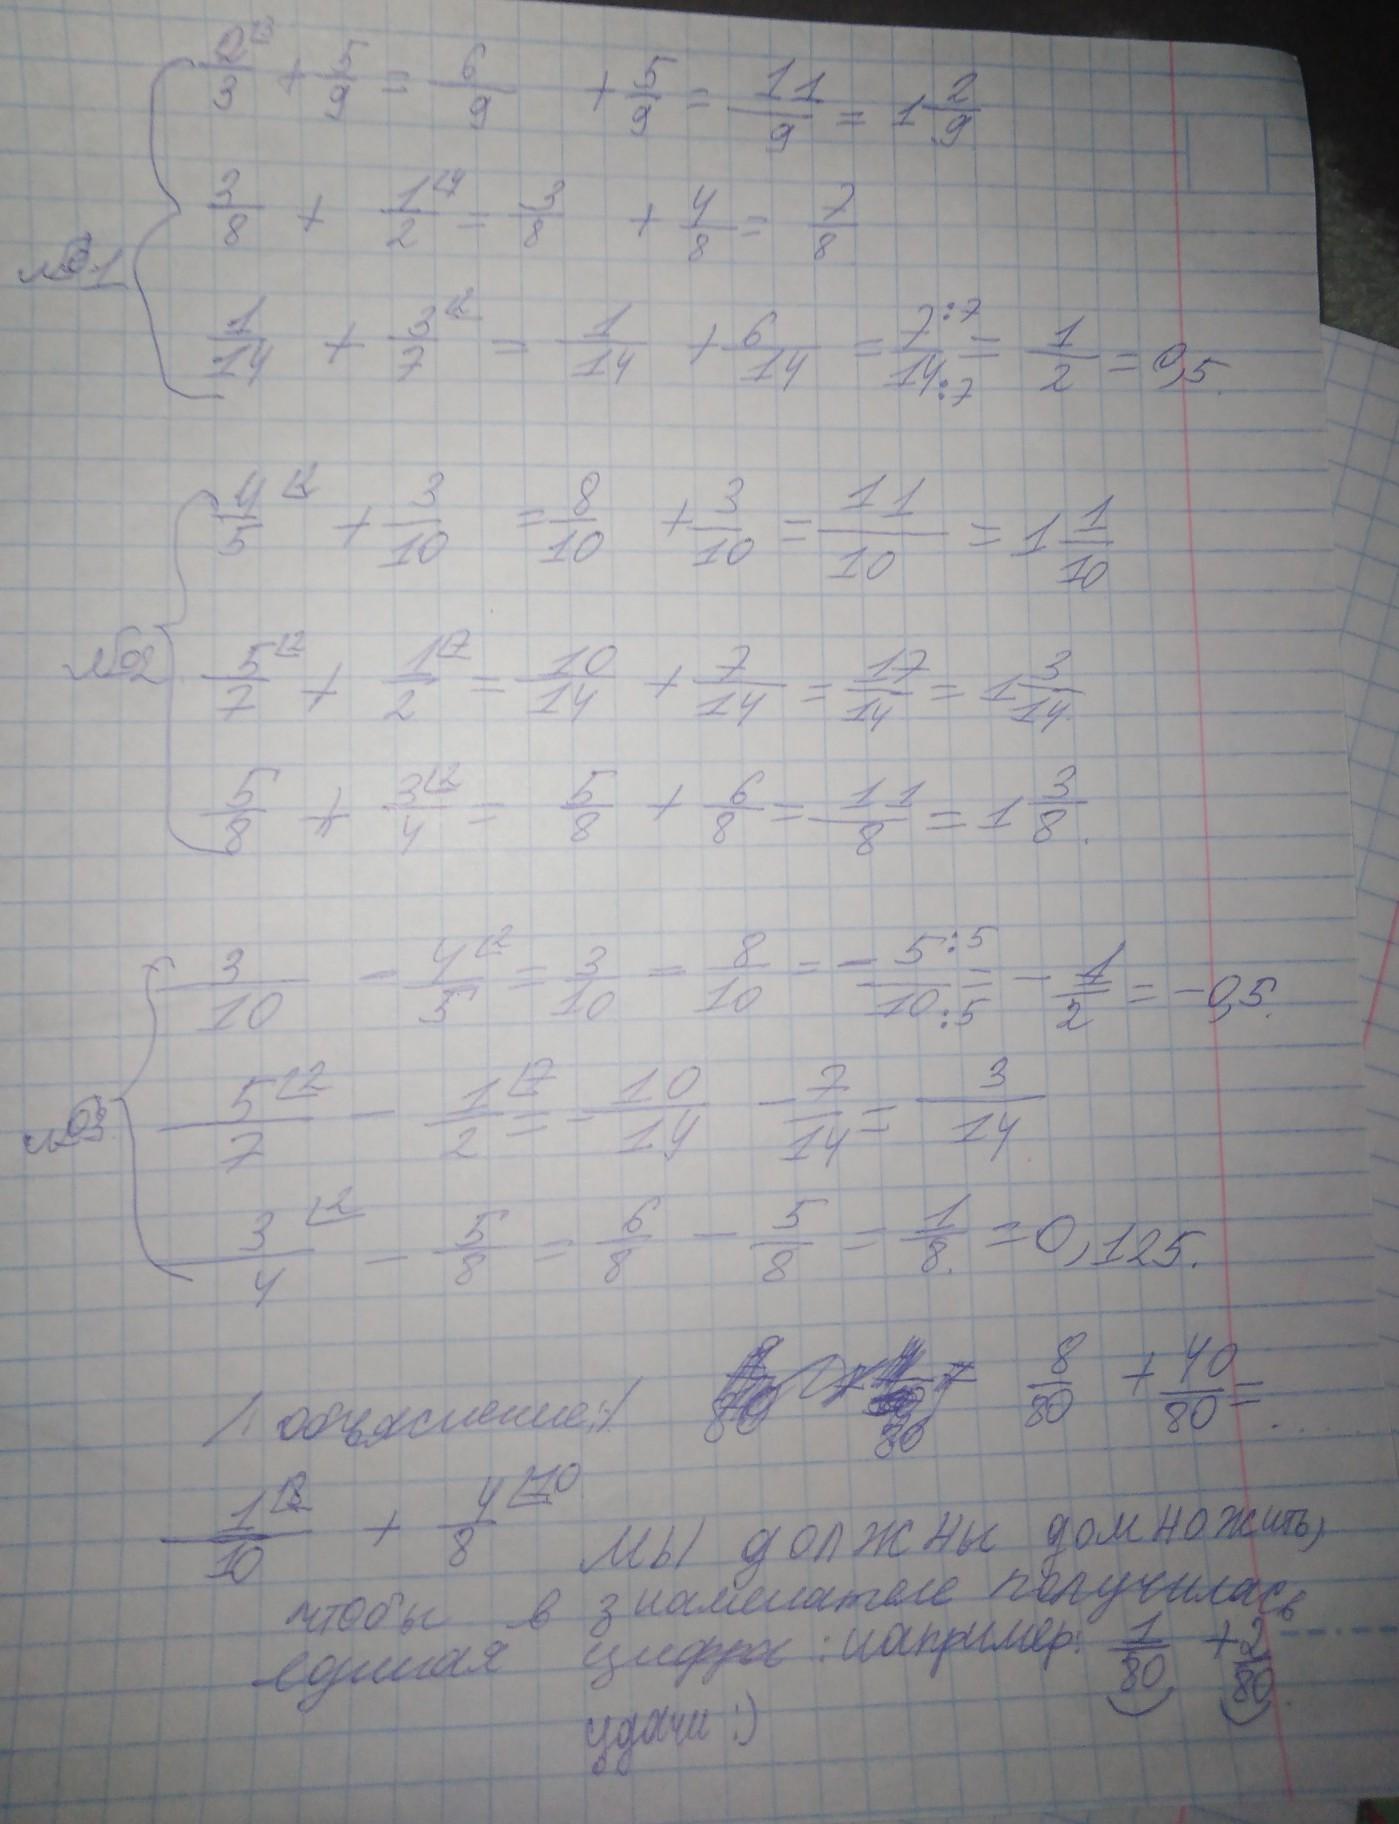 2⌞3/3 + 5/9 = 6/9 + 5/9 = 11/9 = 1 2/9
№1
3/8 + 1⌞4/2 = 3/8 + 4/8 = 7/8
1/14 + 3⌞2/7 = 1/14 + 6/14 = 7:7/14:7 = 1/2 = 0,5.
4⌞2/5 + 3/10 = 8/10 + 3/10 = 11/10 = 1 1/10
№2
5⌞2/7 + 1⌞7/2 = 10/14 + 7/14 = 17/14 = 1 3/14
5/8 + 3⌞2/4 = 5/8 + 6/8 = 11/8 = 1 3/8.
3/10 - 4⌞2/5 = 3/10 - 8/10 = - 5:5/10:5 = - 1/2 = -0,5.
№3
5⌞2/7 - 1⌞7/2 = - 10/14 - 7/14 = 3/14
3⌞2/4 - 5/8 = 6/8 - 5/8 = 1/8. = 0,125.
/. объяснение:/ 8/80 + 40/80 = ...
1⌞8/10 + 4⌞10/8 мы должны домножить,
чтобы в знаменателе получилась
единая цифра: например: 1/80 + 2/80.
удачи :)